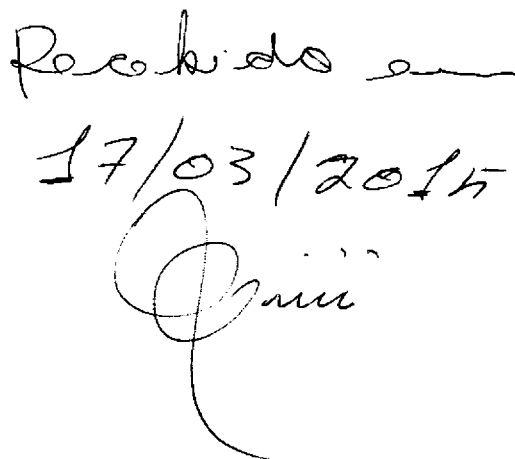 Recebido em
17/03/2015